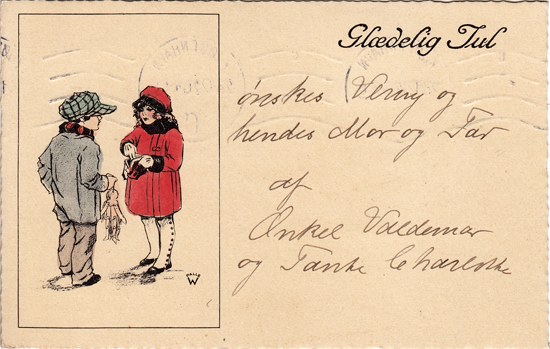 Glædelig Jul
ønskes Venny og
hendes Mor og Far
af
Onkel Valdemar
og Tante Charlotte
W